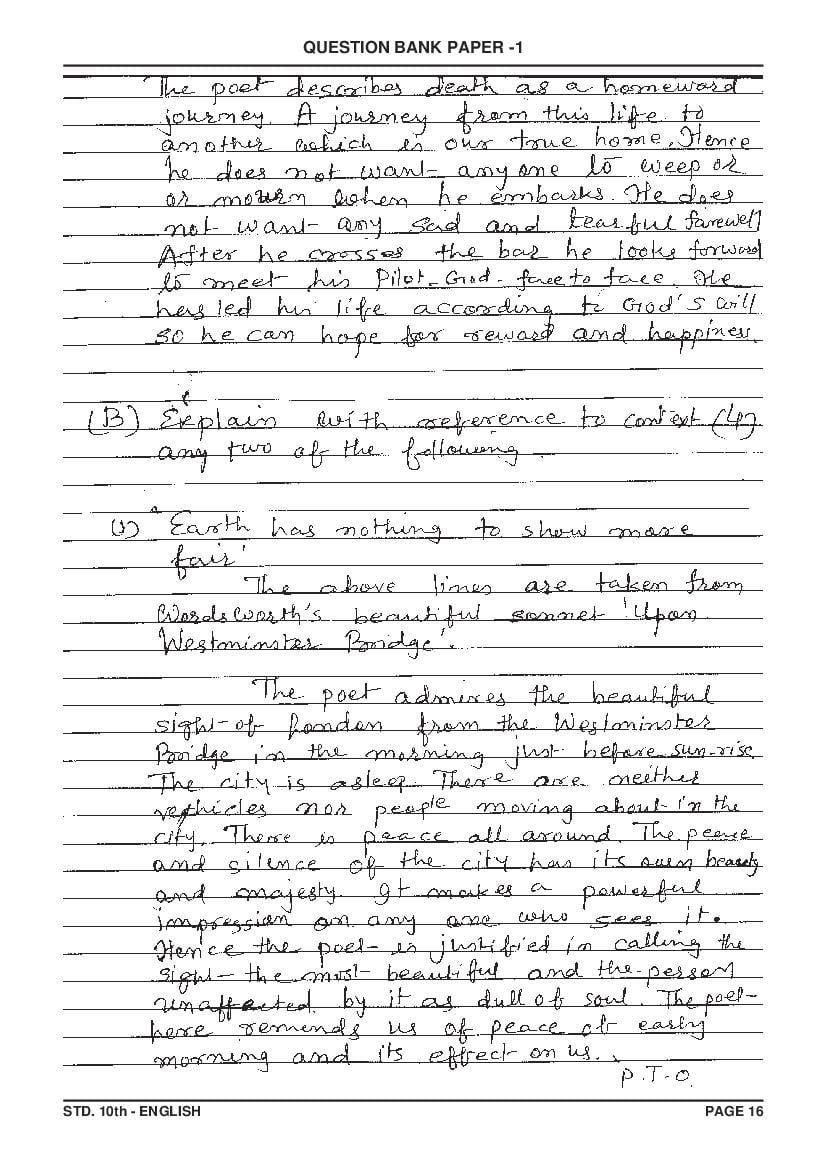 QUESTION BANK PAPER -1
The poet describes death as a homeward
journey. A journey from this life to
another which is our true home. Hence
he does not want any one to weep or
or mourn when he embarks. He does
not want any sad and tearful farewell
After he crosses the bar he looks forward
to meet his Pilot-God-face to face. He
has led his life according to God's will
so he can hope for reward and happiness.
(B) Explain with reference to context (4)
any two of the following
(1) 'Earth has nothing to show more
fair'
The above lines are taken from
Wordsworth's beautiful sonnet 'Upon
Westminster Bridge'.
The poet admires the beautiful
sight of London from the Westminster
Bridge in the morning just before sun-rise
The city is asleep. There are neither
vephicles nor people moving about in the
city. There is peace all around. The peace
and silence of the city has its own beauty
and majesty. It makes a powerful
impression on any one who sees it.
Hence the poet is justified in calling the
sight the most beautiful and the person
unaffected by it as dull of soul. The poet
here reminds us of peace of early
morning and its effect on us.
P.T.O.
STD. 10th - ENGLISH PAGE 16